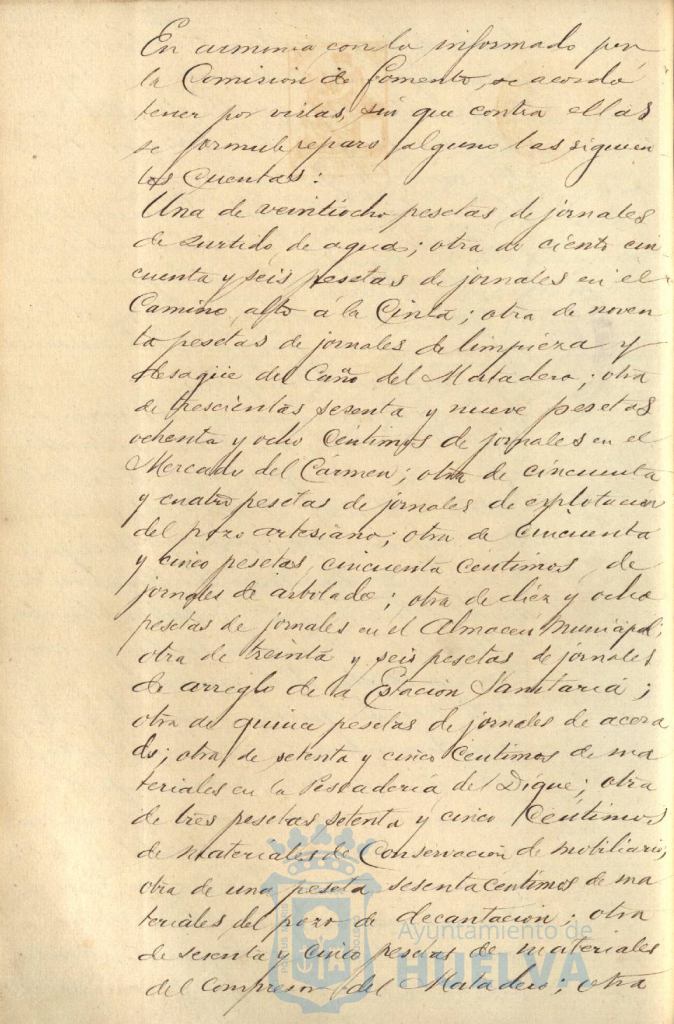 En armonia con lo informado por
la Comision de Fomento, se acordó
tener por vistas, sin que contra ellas
se formule reparo alguno las siguien
tes Cuentas:
Una de veintiocho pesetas de jornales
de surtido de agua; otra de ciento cin
cuenta y seis pesetas de jornales en el
Camino alto á la Cinta; otra de noven
ta pesetas de jornales de limpieza y
desagüe del Caño del Matadero; otra
de trescientas sesenta y nueve pesetas
ochenta y ocho Céntimos de jornales en el
Mercado del Cármen; otra de cincuenta
y cuatro pesetas de jornales de explotacion
del pozo artesiano; otra de cincuenta
y cinco pesetas, cincuenta Céntimos, de
jornales de arbolado; otra de diez y ocho
pesetas de jornales en el Almacen Municipal;
otra de treinta y seis pesetas de jornales
de arreglo de la Estacion Sanitaria;
otra de quince pesetas de jornales de acera
do; otra de setenta y cinco Centimos de ma
teriales en la Pescaderia del Dique; otra
de tres pesetas setenta y cinco Céntimos
de materiales de Conservacion de mobiliario;
otra de una peseta sesenta céntimos de ma
teriales del pozo de decantacion; otra
Ayuntamiento de
de sesenta y cinco pesetas de materiales
HUELVA
del Compresor del Matadero; otra